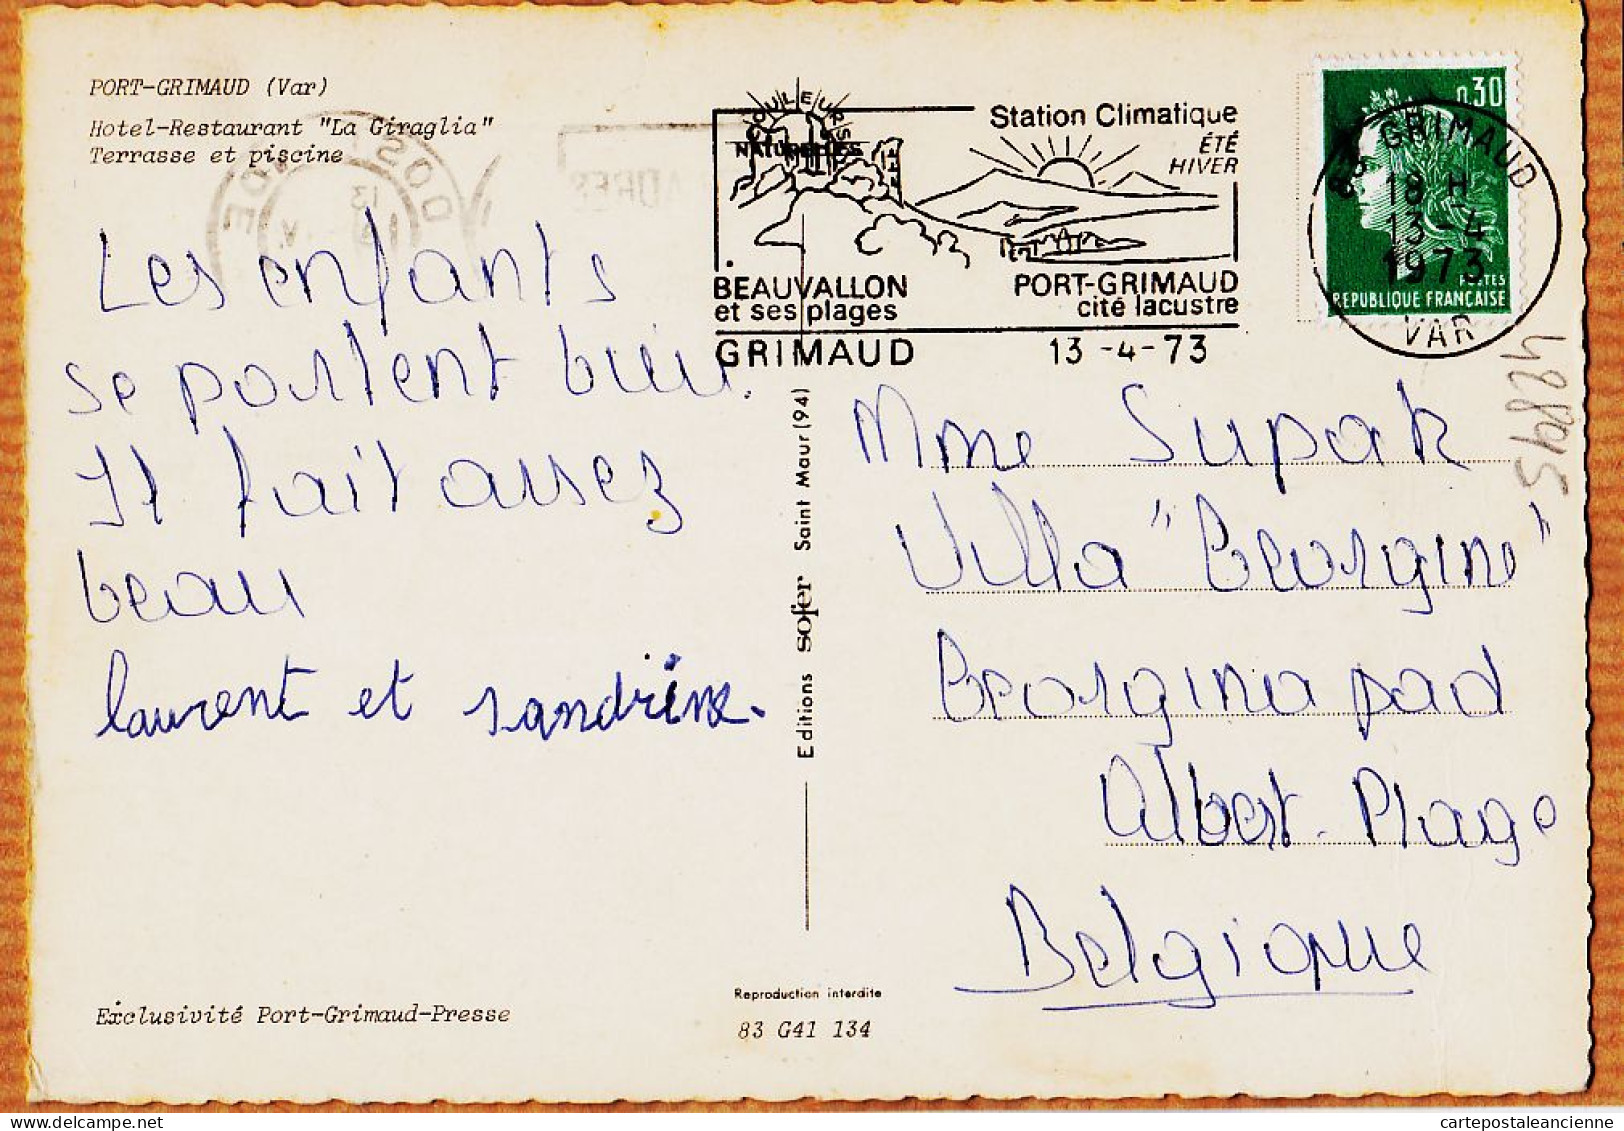 PORT-GRIMAUD (Var)
Hotel-Restaurant "La Giraglia"
Terrasse et piscine
Les enfants
se portent bien.
Il fait assez
beau
laurent et sandrine.
Exclusivité Port-Grimaud-Presse
COULEURS
NATURELLES
Station Climatique
ÉTÉ
HIVER
BEAUVALLON
et ses plages
PORT-GRIMAUD
cité lacustre
GRIMAUD
13-4-73
0.30
POSTES
REPUBLIQUE FRANÇAISE
83 GRIMAUD
18 H
13-4
1973
VAR
Editions sofer Saint Maur (94)
Mme Supak
Villa "Georgine"
Georgina pad
Albert-Plage
Belgique
Reproduction interdite
83 G41 134
cartepostaleancienne